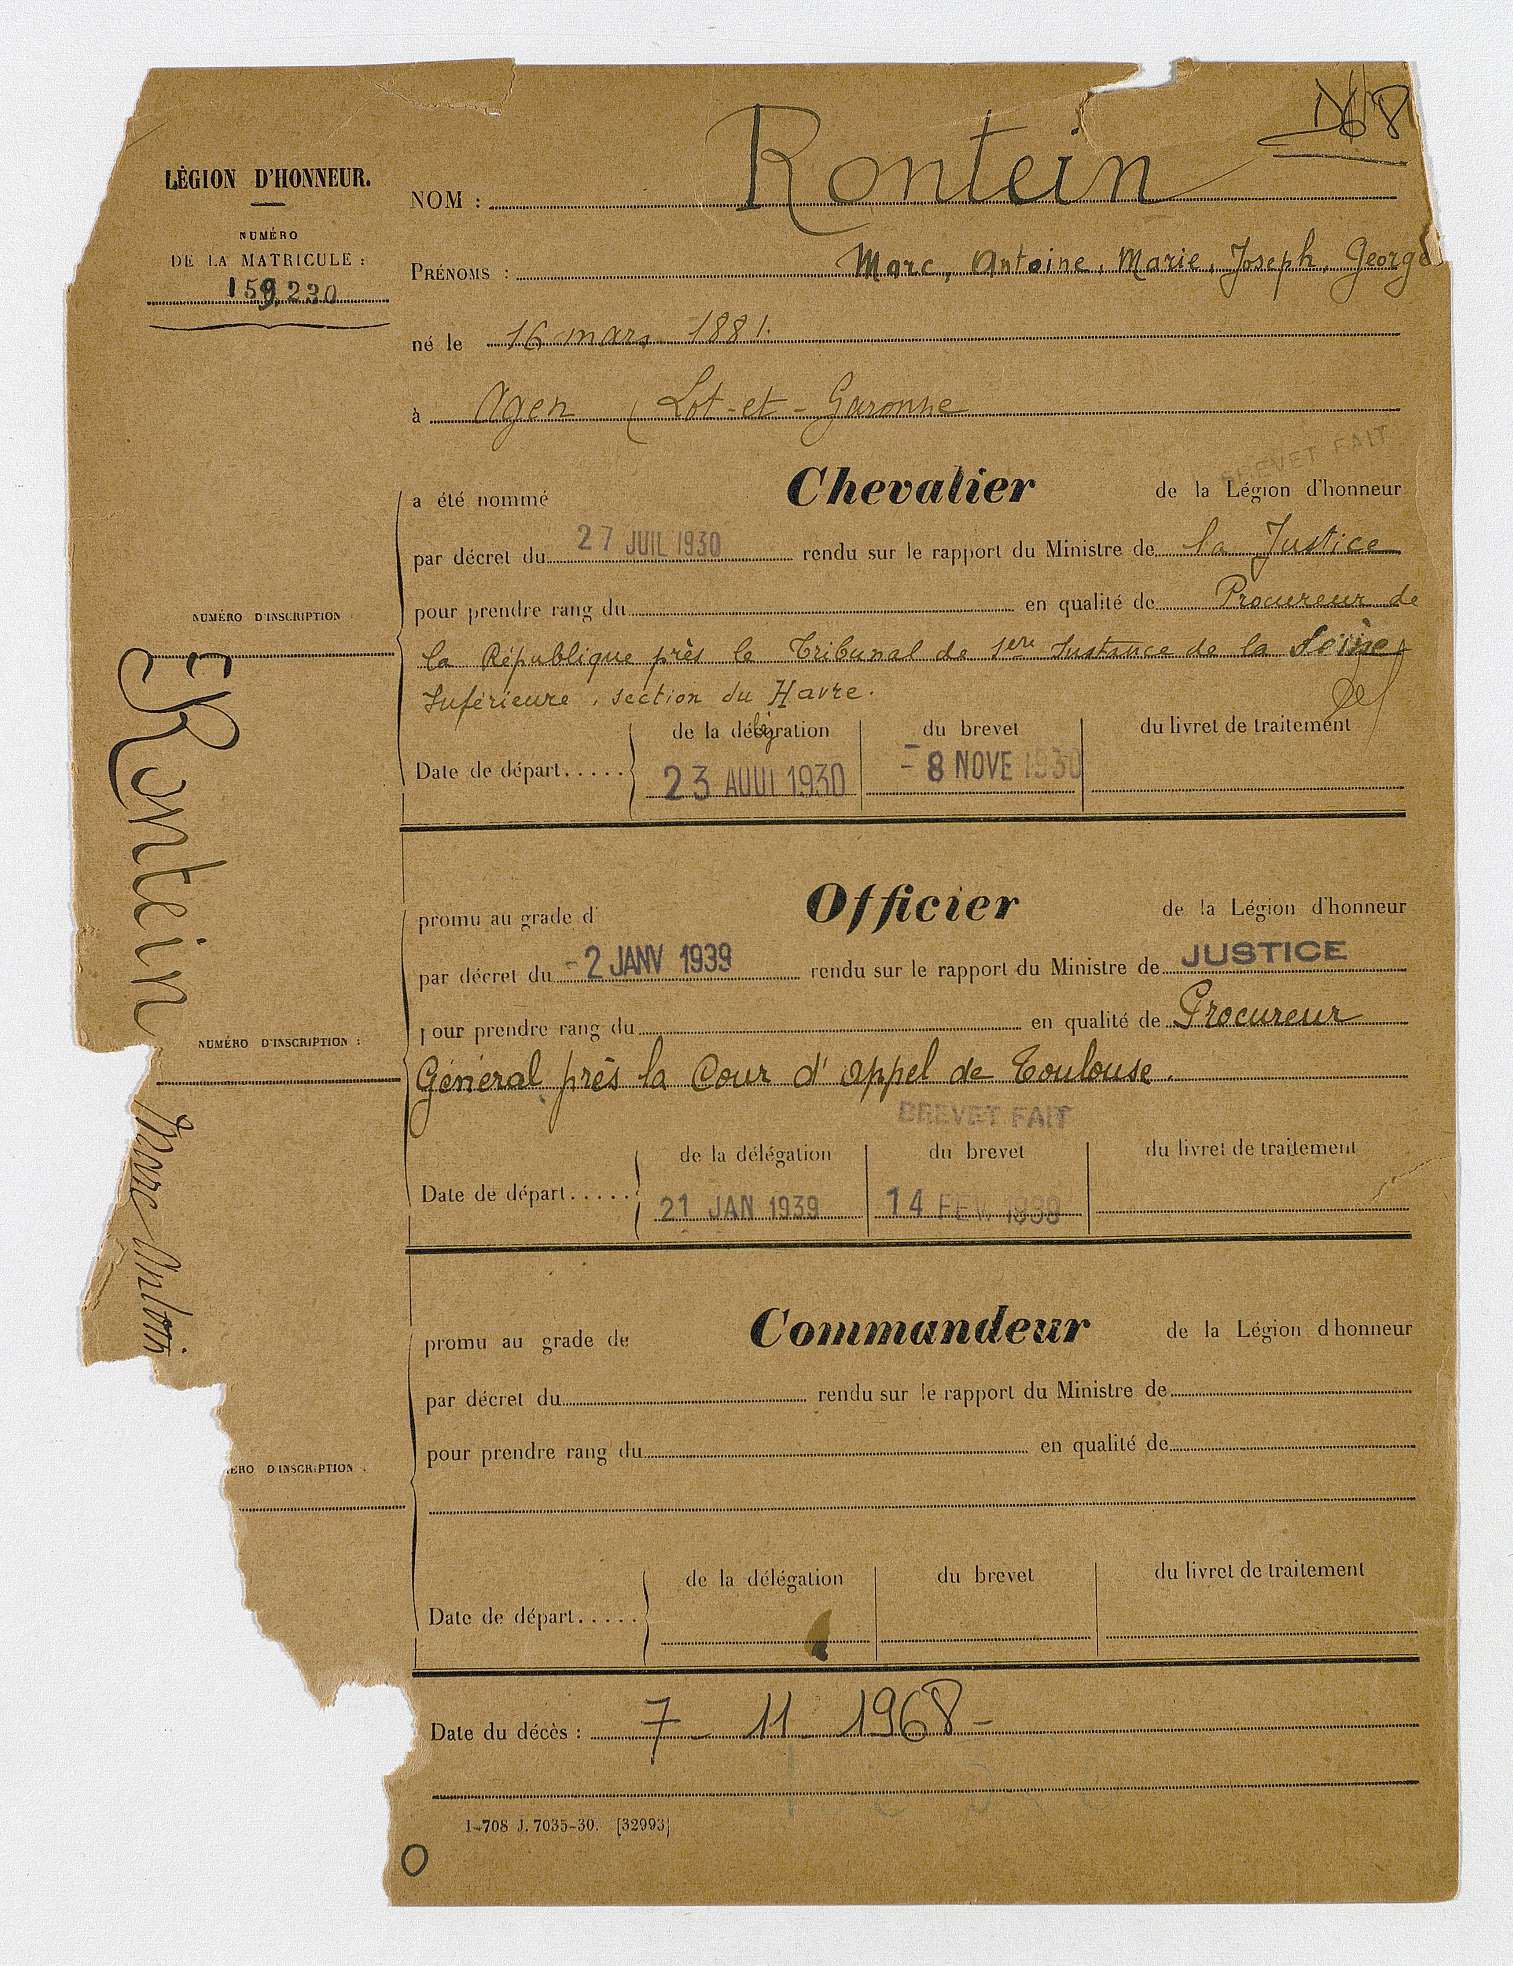 D68
LÉGION D'HONNEUR.
NUMÉRO
DE LA MATRICULE :
159,230
NOM : Rontein
PRÉNOMS : Marc, Antoine, Marie, Joseph, George
né le 16 mars 1881.
à Agen ( Lot-et-Garonne
BREVET FAIT
a été nommé Chevalier de la Légion d'honneur
par décret du 27 JUIL 1930 rendu sur le rapport du Ministre de la Justice
pour prendre rang du en qualité de Procureur de
NUMÉRO D'INSCRIPTION
la République près le Tribunal de 1ère Instance de la Seine
Inférieure, section du Havre.
de la délégration du brevet du livret de traitement
Date de départ..... 23 AOUT 1930 - 8 NOVE 1930
Rontein
Marc Antoin
promu au grade d' Officier de la Légion d'honneur
par décret du - 2 JANV 1939 rendu sur le rapport du Ministre de JUSTICE
pour prendre rang du en qualité de Procureur
NUMÉRO D'INSCRIPTION :
Général près la Cour d'appel de Toulouse.
BREVET FAIT
de la délégation du brevet du livret de traitement
Date de départ..... 21 JAN 1939 14 FEV. 1939
promu au grade de Commandeur de la Légion d honneur
par décret du rendu sur le rapport du Ministre de
pour prendre rang du en qualité de
ÉRO D'INSCRIPTION .
de la délégation du brevet du livret de traitement
Date de départ.....
Date du décès : 7 - 11 1968 -
1-708 J. 7035-30. [32993]